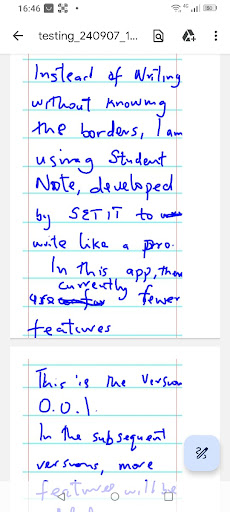 16:46
testing_240907_1...
Instead of Writing
without knowing
the borders, I am
using Student
Note, developed
by SETIT to
write like a pro.
In this app, there
currently
are fewer
features
This is the Version
0.0.1.
In the subsequent
versions, more
features will be